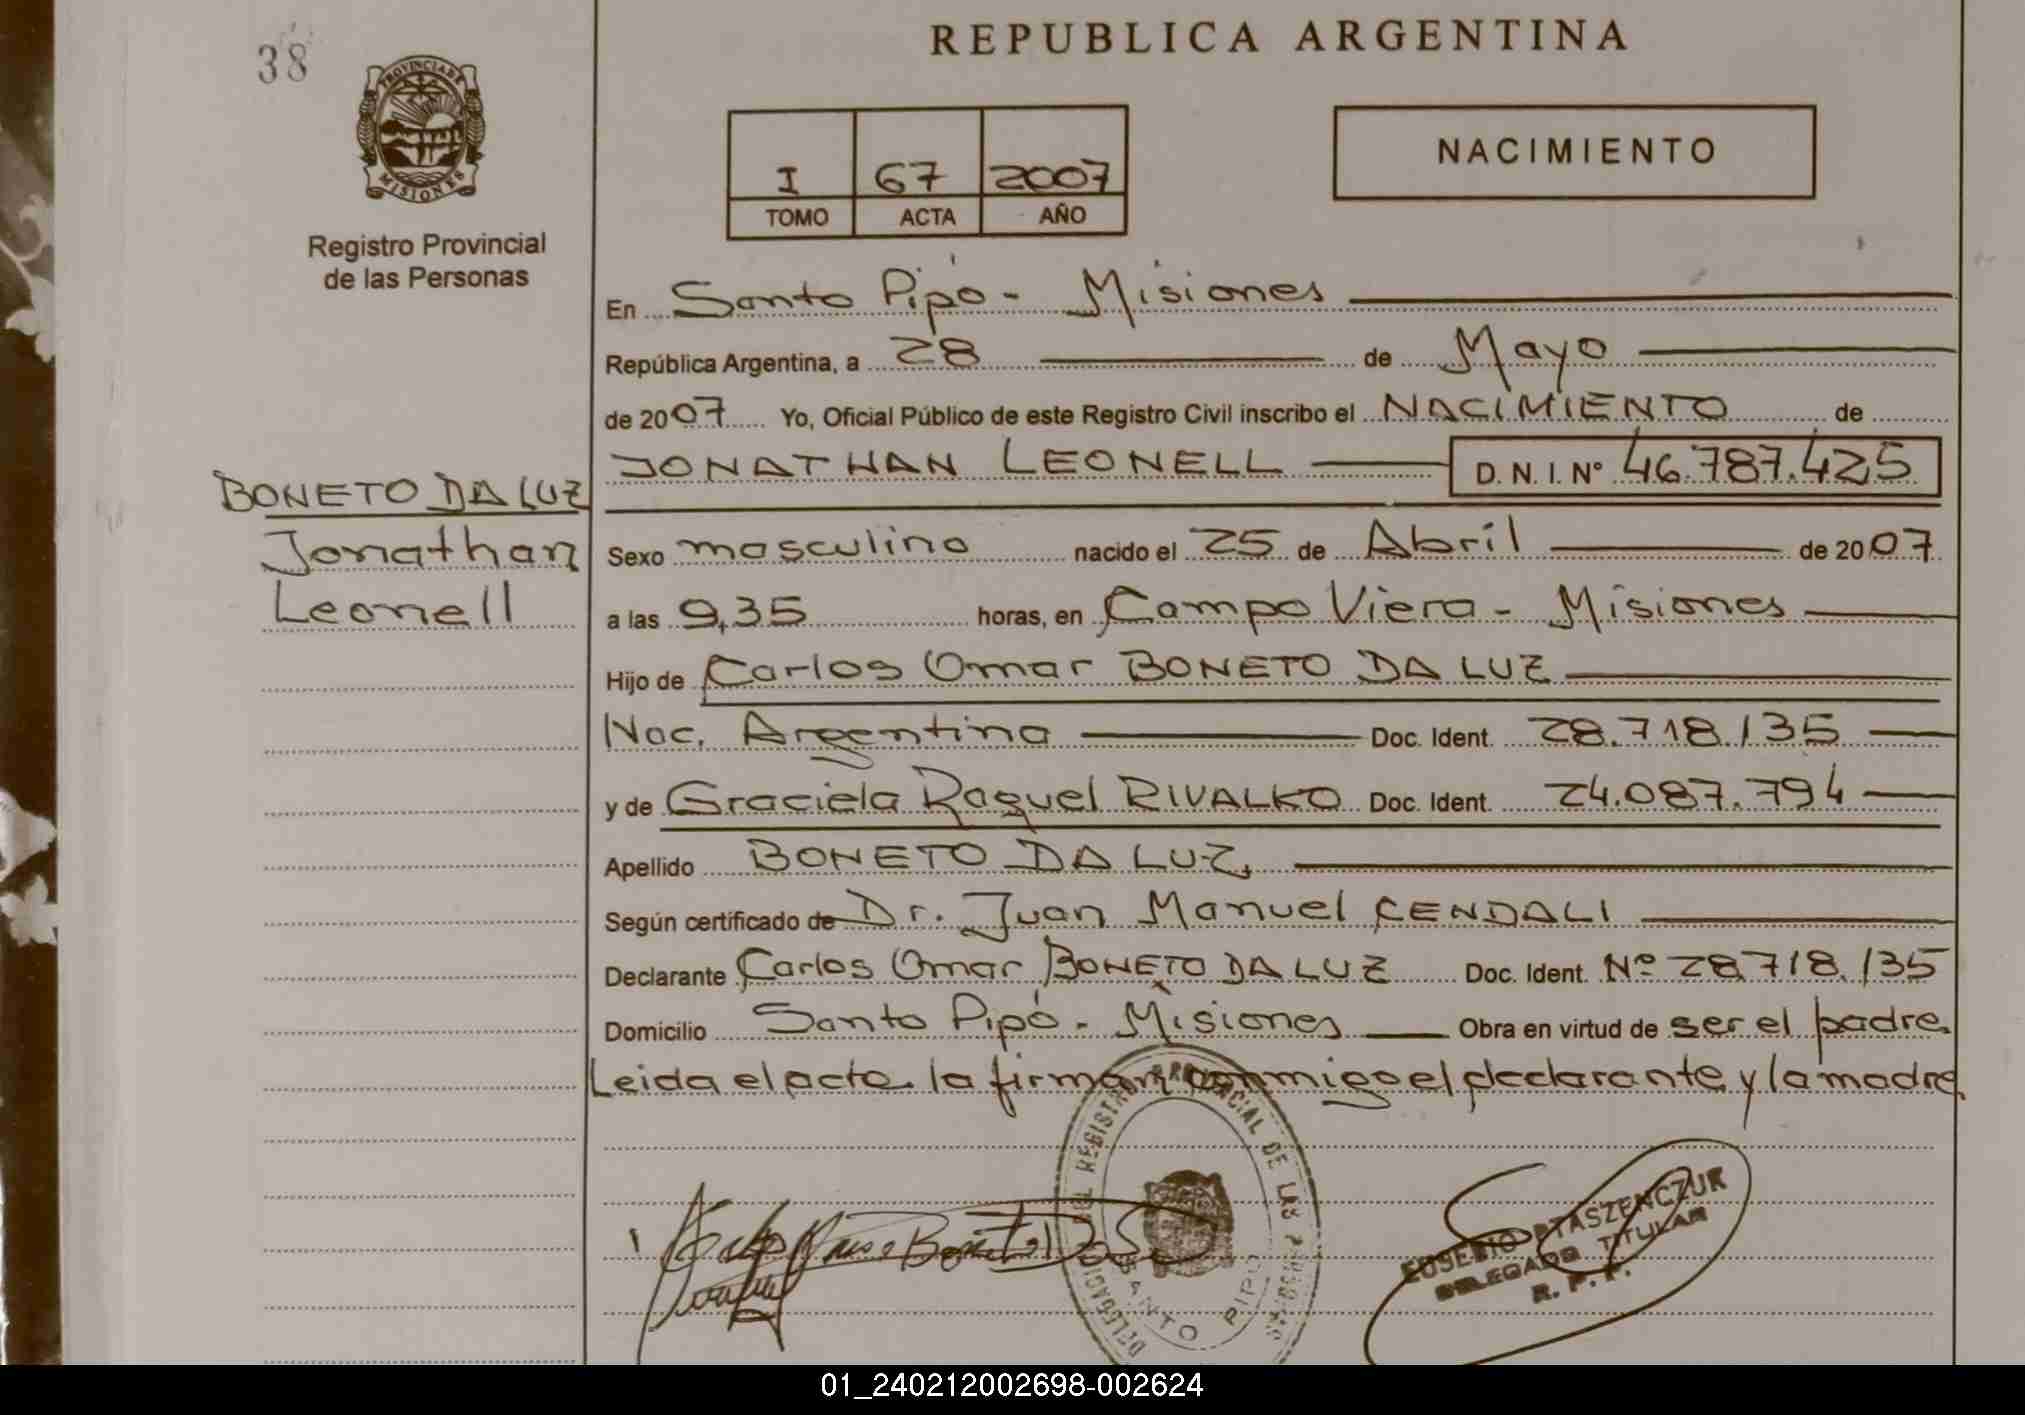 38
PROVINCIA DE
MISIONES
Registro Provincial
de las Personas
BONETO DA LUZ
Jonathan
Leonell
REPUBLICA ARGENTINA
I 67 2007
TOMO ACTA AÑO
NACIMIENTO
En Santo Pipó - Misiones
República Argentina, a 28 de Mayo
de 2007 Yo, Oficial Público de este Registro Civil inscribo el NACIMIENTO de
JONATHAN LEONELL D. N. I. N° 46.787.425
Sexo masculino nacido el 25 de Abril de 2007
a las 9,35 horas, en Campo Viera - Misiones
Hijo de Carlos Omar BONETO DA LUZ
Nac. Argentina Doc. Ident. 28.718.135
y de Graciela Raquel RIVALKO Doc. Ident. 24.087.794
Apellido BONETO DA LUZ
Según certificado de Dr. Juan Manuel CENDALI
Declarante Carlos Omar BONETO DA LUZ Doc. Ident. Nº 28.718.135
Domicilio Santo Pipó - Misiones Obra en virtud de ser el padre.
Leida el acta la firman conmigo el declarante y la madre
DELEGACION DEL REGISTRO PROVINCIAL DE LAS PERSONAS
SANTO PIPO
EUSEBIO PTASZENCZUK
DELEGADO TITULAR
R. P. P.
01_240212002698-002624